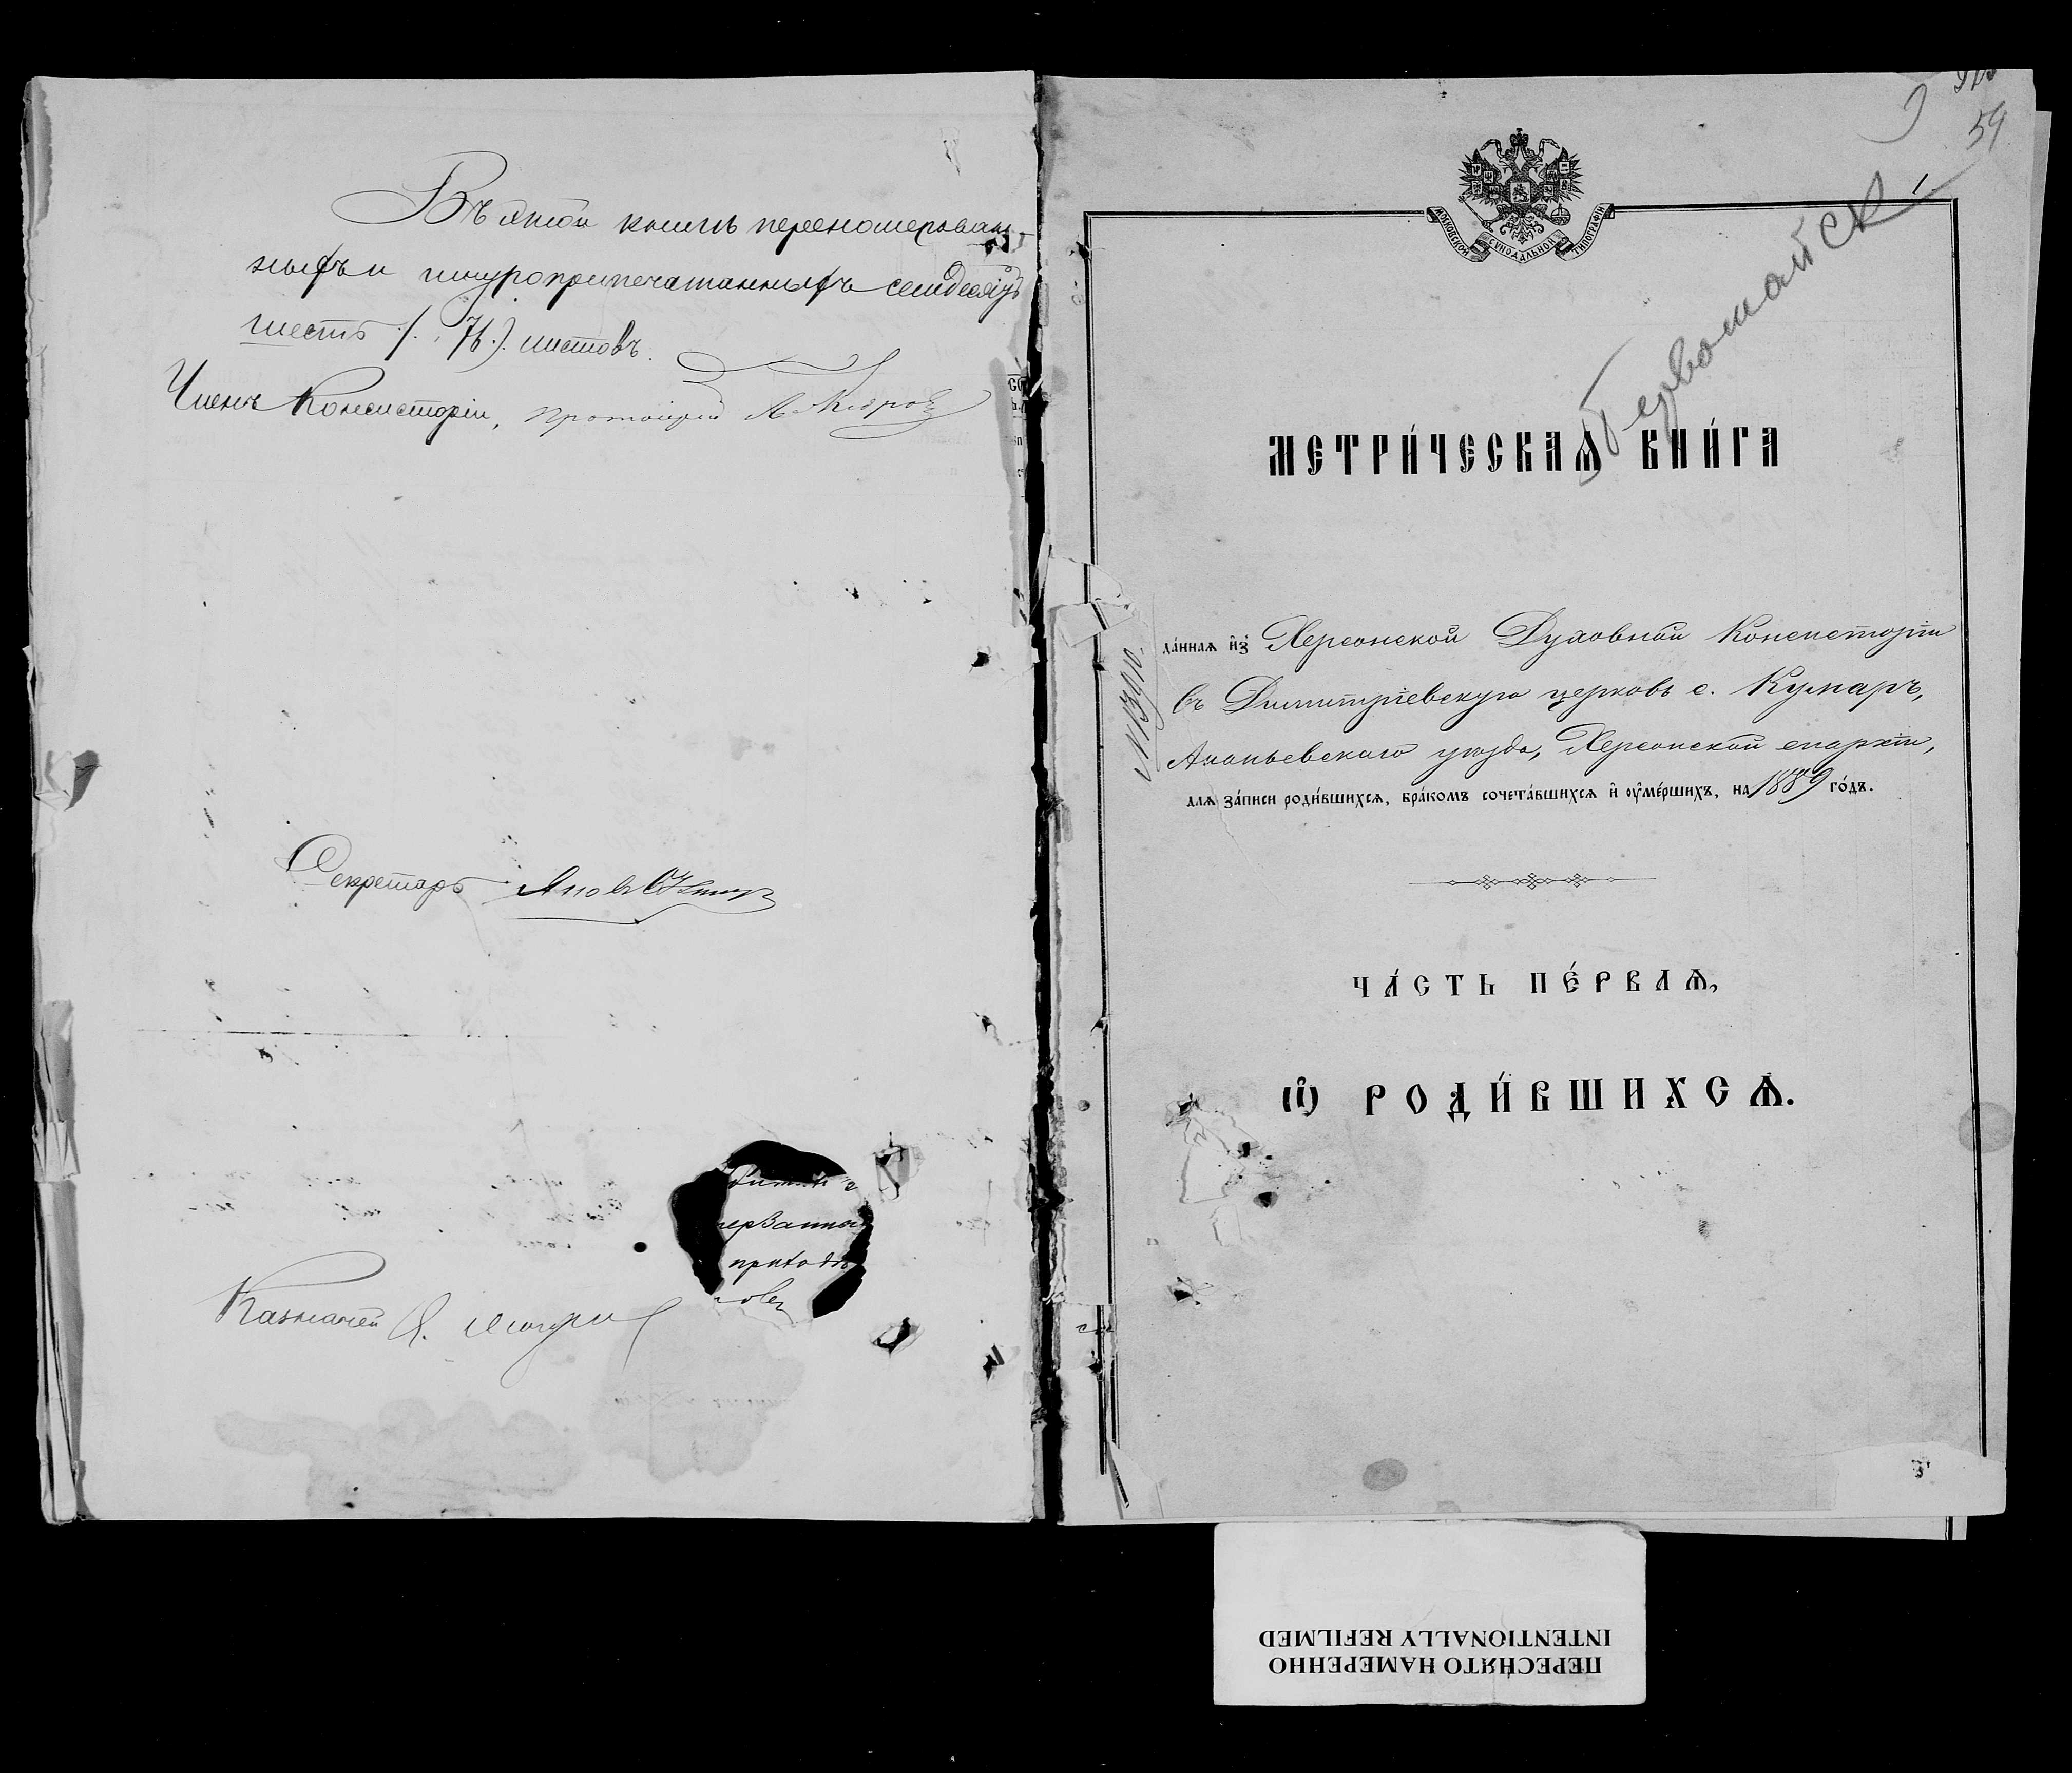 Въ этой книгѣ переномерован-
ныхъ и шнуроприпечатанныхъ семдесятъ
шесть (76.) листовъ.
Членъ Консисторіи, протоіерей
Секретарь
Казначей
приходѣ
59
1
МОСКОВСКОЙ СѴНОДАЛЬНОЙ ТИПОГРАФІИ
Первомайск
МЕТРИ́ЧЕСКАѦ КНИ́ГА
да́ннаѧ и҆з̾ Херсонской Духовной Консисторіи
въ Димитріевскую церковь с. Кумаръ,
Ананьевскаго уѣзда, Херсонской епархіи,
длѧ за́писи роди́вшихсѧ, бра́комъ сочета́вшихсѧ и҆ ѹ҆ме́ршихъ, на 1889 го́дъ.
ЧА́СТЬ ПЕ́РВАѦ,
Ѡ҆ РОДИ́ВШИХСѦ.
ПЕРЕСНЯТО НАМЕРЕННО
INTENTIONALLY REFILMED